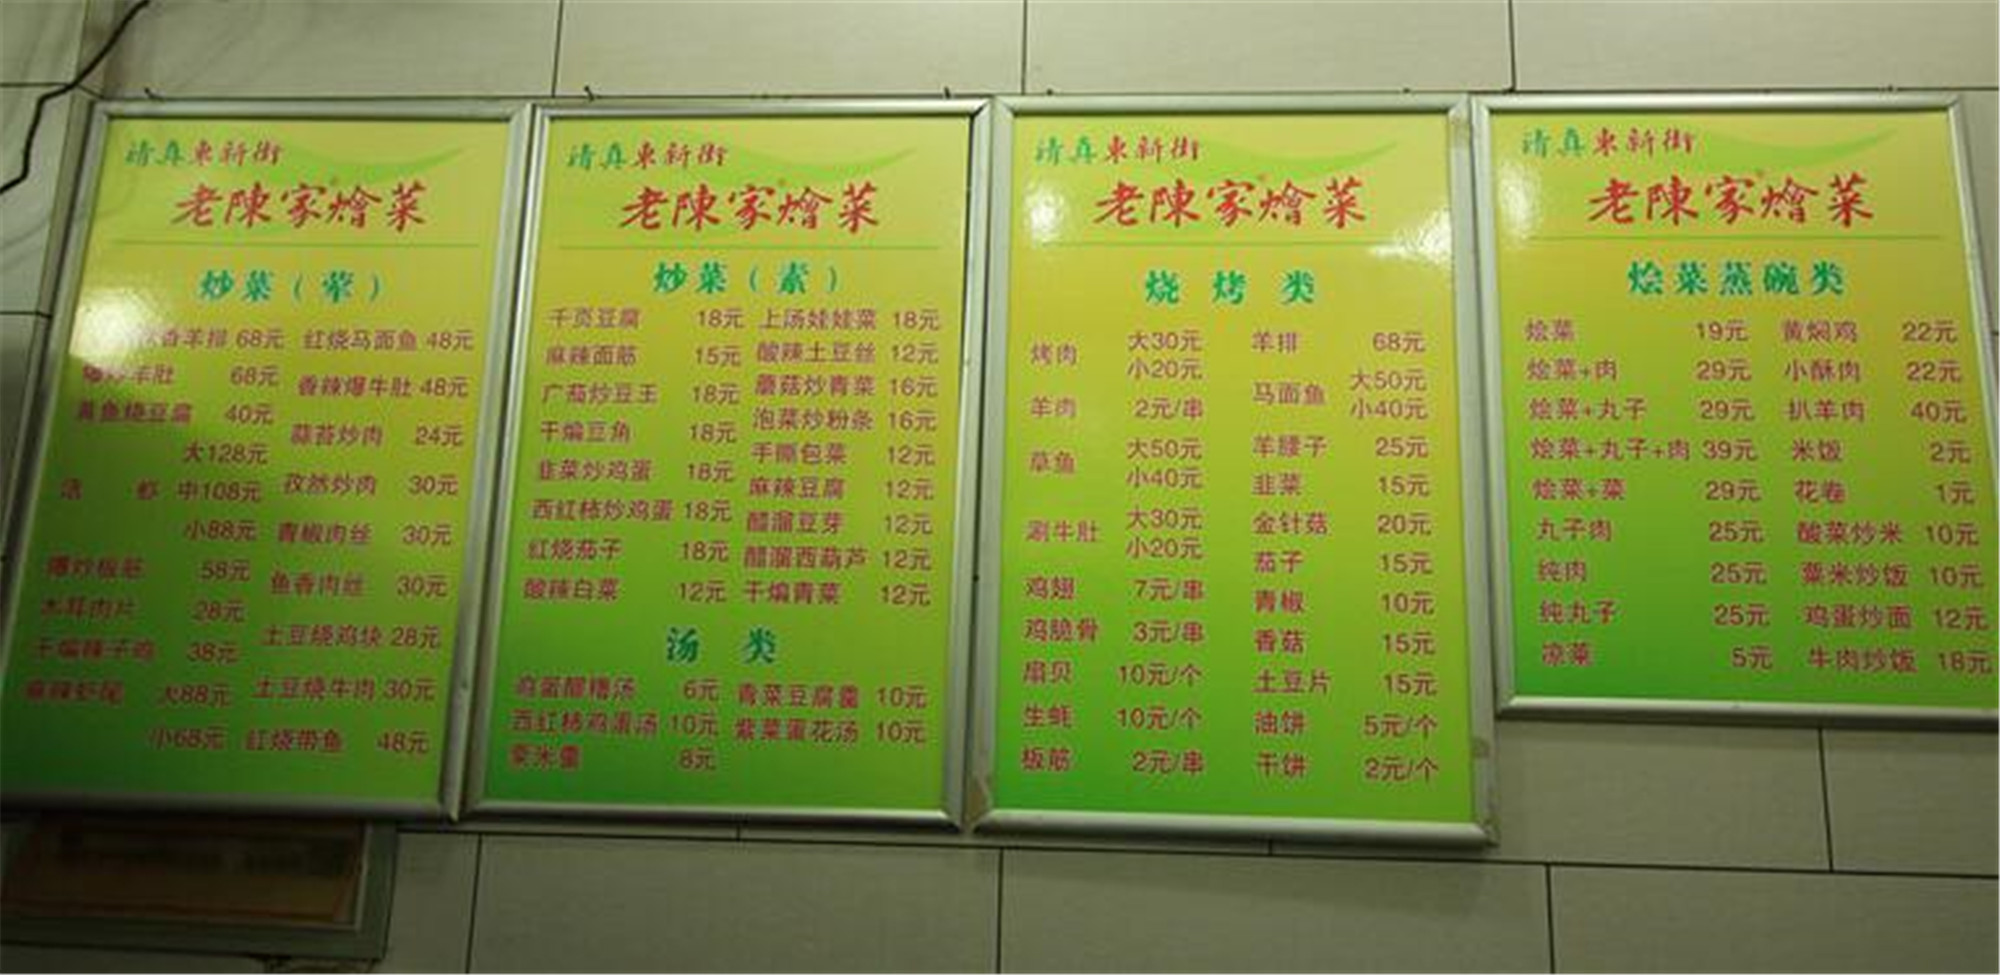 清真東新街
老陳家燴菜
炒菜（荤）
香羊排 68元 红烧马面鱼 48元
爆炒羊肚 68元 香辣爆牛肚 48元
黄鱼烧豆腐 40元 蒜苔炒肉 24元
大128元
活虾 中108元 孜然炒肉 30元
小88元 青椒肉丝 30元
爆炒板筋 58元 鱼香肉丝 30元
木耳肉片 28元 土豆烧鸡块 28元
干煸辣子鸡 38元 土豆烧牛肉 30元
麻辣虾尾 大88元
小68元 红烧带鱼 48元
清真東新街
老陳家燴菜
炒菜（素）
千页豆腐 18元 上汤娃娃菜 18元
麻辣面筋 15元 酸辣土豆丝 12元
广茄炒豆王 18元 蘑菇炒青菜 16元
干煸豆角 18元 泡菜炒粉条 16元
韭菜炒鸡蛋 18元 手撕包菜 12元
西红柿炒鸡蛋 18元 麻辣豆腐 12元
红烧茄子 18元 醋溜豆芽 12元
酸辣白菜 12元 醋溜西葫芦 12元
干煸青菜 12元
汤类
鸡蛋醪糟汤 6元 青菜豆腐羹 10元
西红柿鸡蛋汤 10元 紫菜蛋花汤 10元
米羹 8元
清真東新街
老陳家燴菜
烧烤类
烤肉 大30元 小20元 羊排 68元
羊肉 2元/串 马面鱼 大50元 小40元
草鱼 大50元 小40元 羊腰子 25元
涮牛肚 大30元 小20元 韭菜 15元
鸡翅 7元/串 金针菇 20元
鸡脆骨 3元/串 茄子 15元
扇贝 10元/个 青椒 10元
生蚝 10元/个 香菇 15元
板筋 2元/串 土豆片 15元
油饼 5元/个
干饼 2元/个
清真東新街
老陳家燴菜
烩菜蒸碗类
烩菜 19元 黄焖鸡 22元
烩菜+肉 29元 小酥肉 22元
烩菜+丸子 29元 扒羊肉 40元
烩菜+丸子+肉 39元 米饭 2元
烩菜+菜 29元 花卷 1元
丸子肉 25元 酸菜炒米 10元
纯肉 25元 粟米炒饭 10元
纯丸子 25元 鸡蛋炒面 12元
凉菜 5元 牛肉炒饭 18元